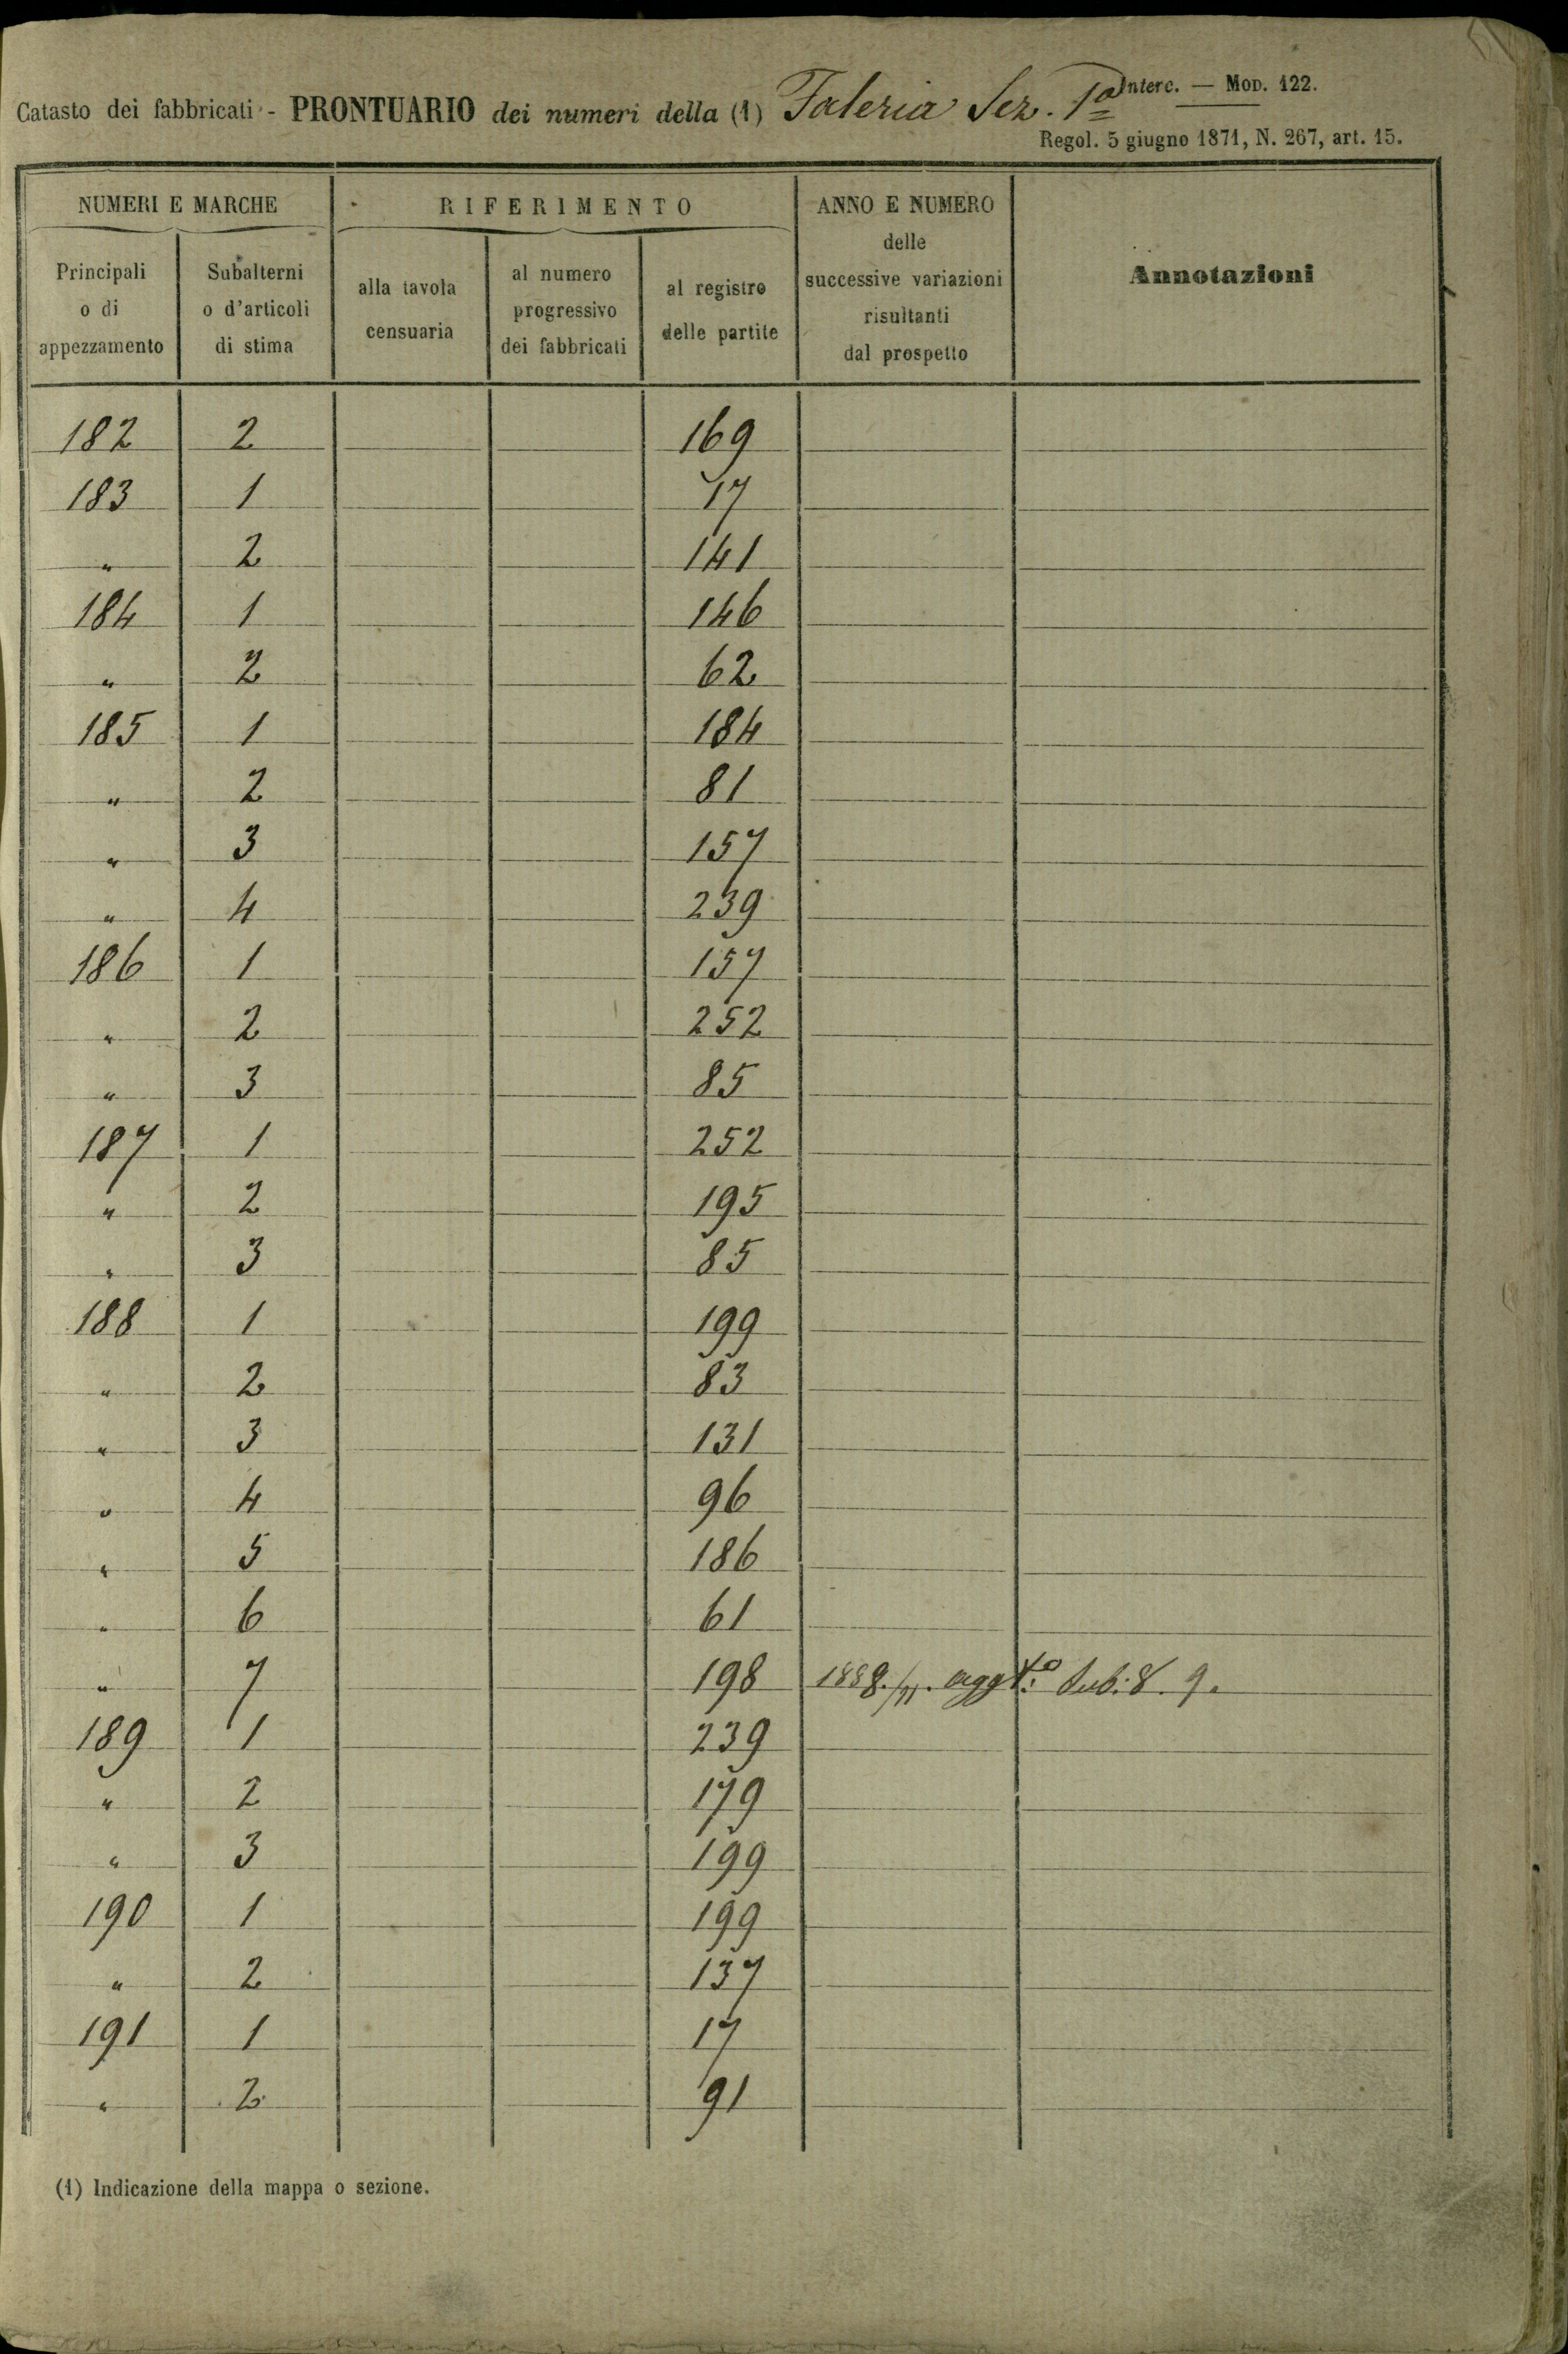 Interc. — Mod. 122.
Catasto dei fabbricati - PRONTUARIO dei numeri della (1) Faleria Sez. 1ª
Regol. 5 giugno 1871, N. 267, art. 15.
NUMERI E MARCHE RIFERIMENTO ANNO E NUMERO delle successive variazioni risultanti dal prospetto Annotazioni
Principali o di appezzamento Subalterni o d'articoli di stima alla tavola censuaria al numero progressivo dei fabbricati al registro delle partite
182 2 169
183 1 17
" 2 141
184 1 146
" 2 62
185 1 184
" 2 81
" 3 157
" 4 239
186 1 157
" 2 252
" 3 85
187 1 252
" 2 195
" 3 85
188 1 199
" 2 83
" 3 131
" 4 96
" 5 186
" 6 61
" 7 198 aggto: Sub: 8. 9.
189 1 239
" 2 179
" 3 199
190 1 199
" 2 137
191 1 17
" 2 91
(1) Indicazione della mappa o sezione.